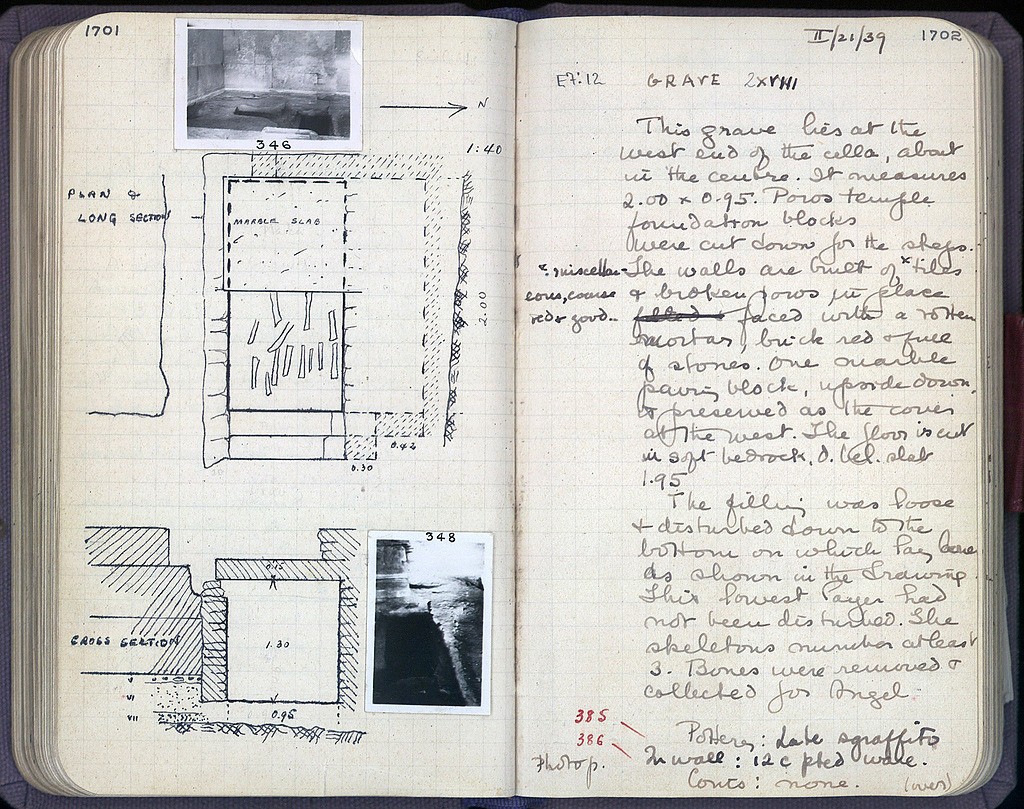 1701
346
N
1:40
PLAN &
LONG SECTION
MARBLE SLAB
2.00
0.42
0.30
348
0.15
CROSS SECTION
1.30
V
VI
VII
0.95
II/21/39 1702
E7:12 GRAVE 2XVIII
This grave lies at the
west end of the cella, about
in the centre. It measures
2.00 x 0.95. Poros temple
foundation blocks
were cut down for the steps.
The walls are built of x tiles
x. miscellan-
eous, coarse
red & good.
& broken poros in place
filled & faced with a rotten
mortar, brick red & full
of stones. One marble
paving block, upside down,
is preserved as the cover
at the west. The floor is cut
in soft bedrock, 0. bel. slab
1.95
The filling was loose
& disturbed down to the
bottom on which lay bones
as shown in the drawing.
This lowest layer had
not been disturbed. The
skeletons number at least
3. Bones were removed &
collected for Angel.
385
386
Photo p.
Pottery: Late sgraffito
In wall: 12 c pted ware.
Conts: none. (over)